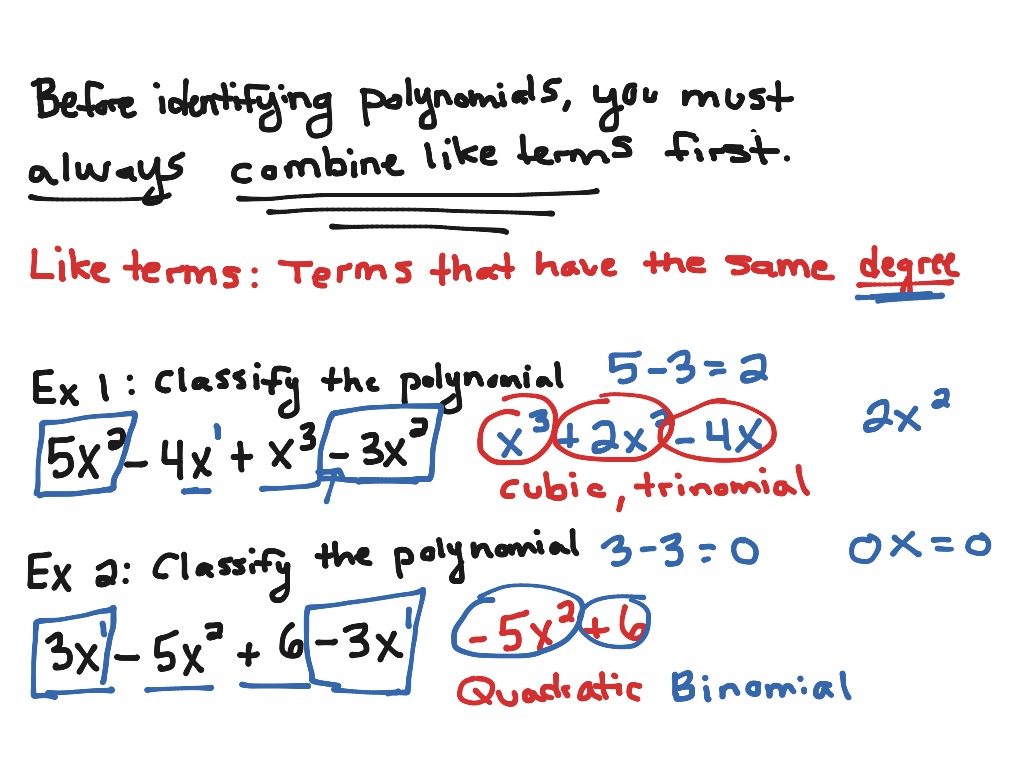 Before identifying polynomials, you must
always combine like terms first.
Like terms: Terms that have the same degree
Ex 1: Classify the polynomial 5-3=2
5x² - 4x¹ + x³ - 3x² x³ + 2x² - 4x 2x²
cubic, trinomial
Ex 2: Classify the polynomial 3-3=0 0x=0
3x¹ - 5x² + 6 - 3x¹ -5x² + 6
Quadratic Binomial